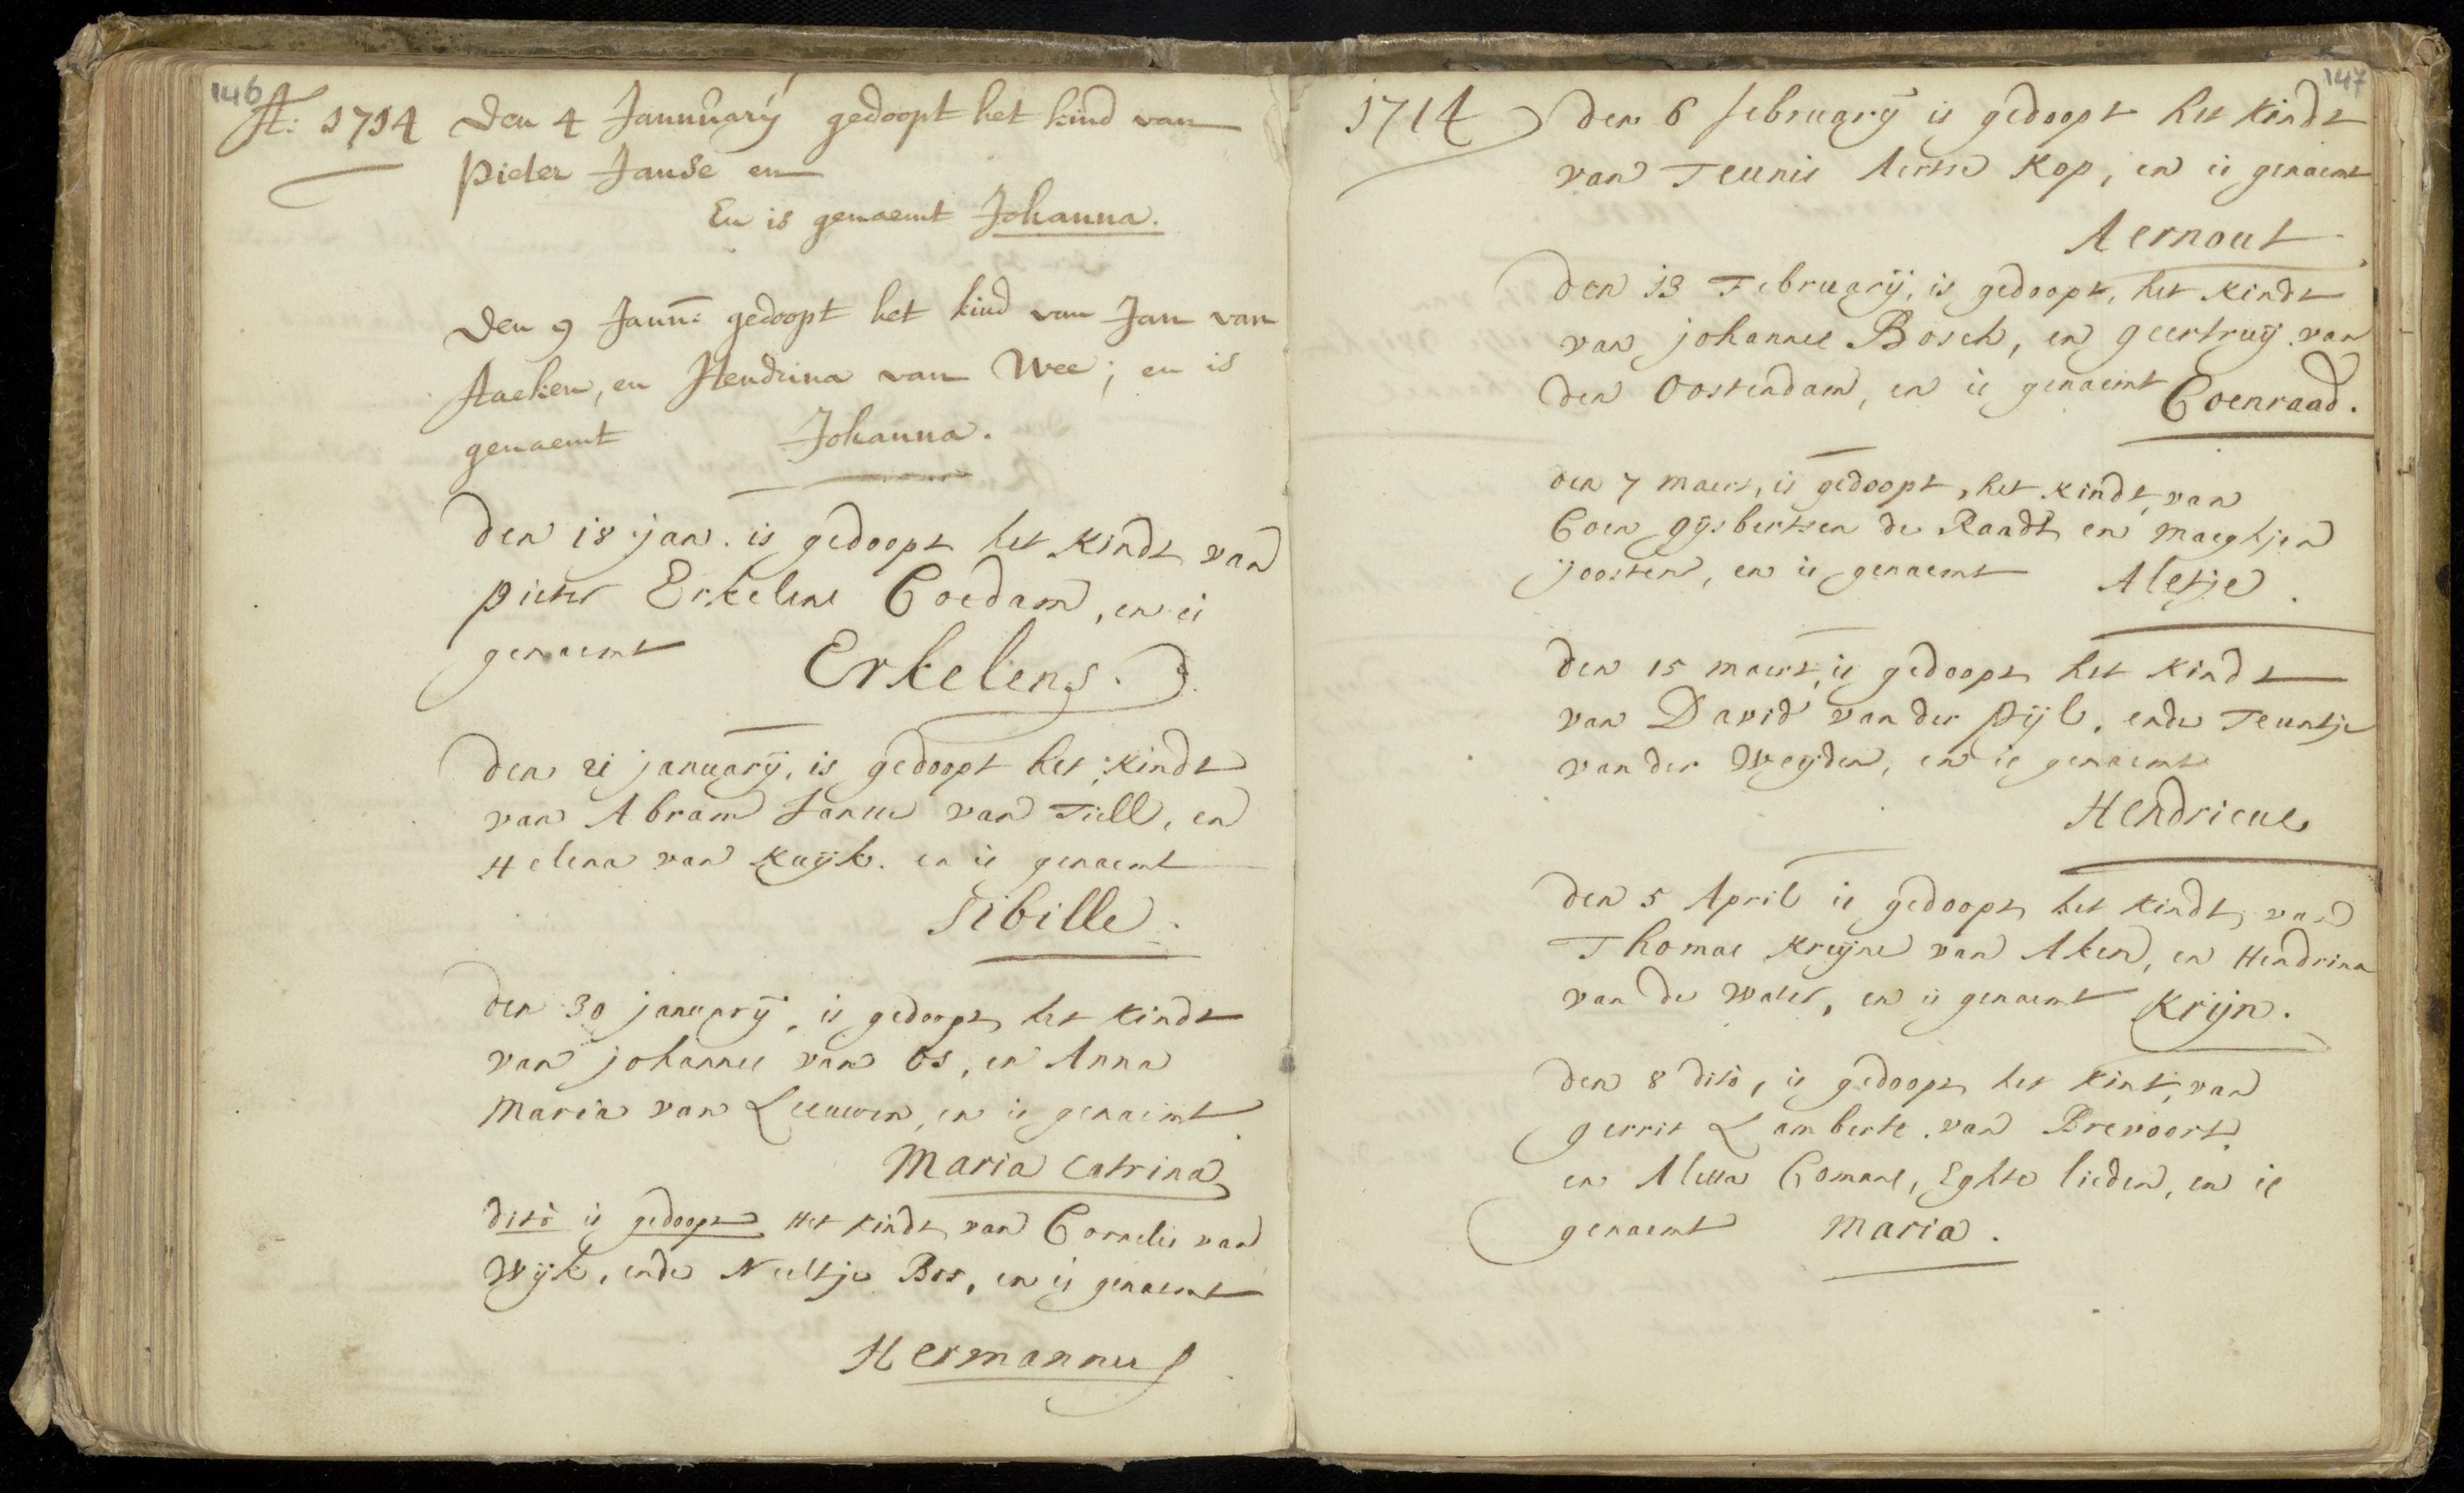 146
Aº: 1714 Den 4 Januuarÿ gedoopt het kind van
Pieter Janse en
En is genaemt Johanna.
Den 9 Januū: gedoopt het kind van Jan van
Aaeken, en Hendrina van Wee; en is
genaemt Johanna.
Den 18 jan. is gedoopt het Kindt van
pieter Erkelens Coedam, en is
genaemt Erkelens.
Den 21 januarÿ, is gedoopt het kindt
van Abram Janse van Tiell, en
Helena van Kuÿk. en is genaemt
Sibille.
den 30 januarÿ, is gedoopt het kindt
van johannes van Os, en Anna
Maria van Leeuwen, en is genaemt
Maria Catrina
dito is gedoopt Het kindt van Cornelis van
Wÿk, ende Neeltje Bos, en is genaemt
Hermannus
147
1714 Den 6 februarÿ is gedoopt het Kindt
van Teunis Aertse Kop, en is genaemt
Aernout
Den 13 Februarÿ, is gedoopt, het Kindt
van johannes Bosch, en geertruÿ van
den Oostendam, en is genaemt Coenraad.
den 7 maert, is gedoopt, het kindt, van
Coen gÿsbertsen de Raadt en maeghjen
joosten, en is genaemt Aletje.
Den 15 maert, is gedoopt het Kindt
van David van der pÿl, ende Teuntje
van der Weÿden, en is genaemt
Hendricus
Den 5 April is gedoopt het kindt, van
Thomas Kruÿne van Aken, en Hendrina
van de Water, en is genaemt Krijn.
Den 8 dito, is gedoopt het kint, van
gerrit Lamberts. van Brevoort
en Aletta Comans, Eghte lieden, en is
genaemt Maria.